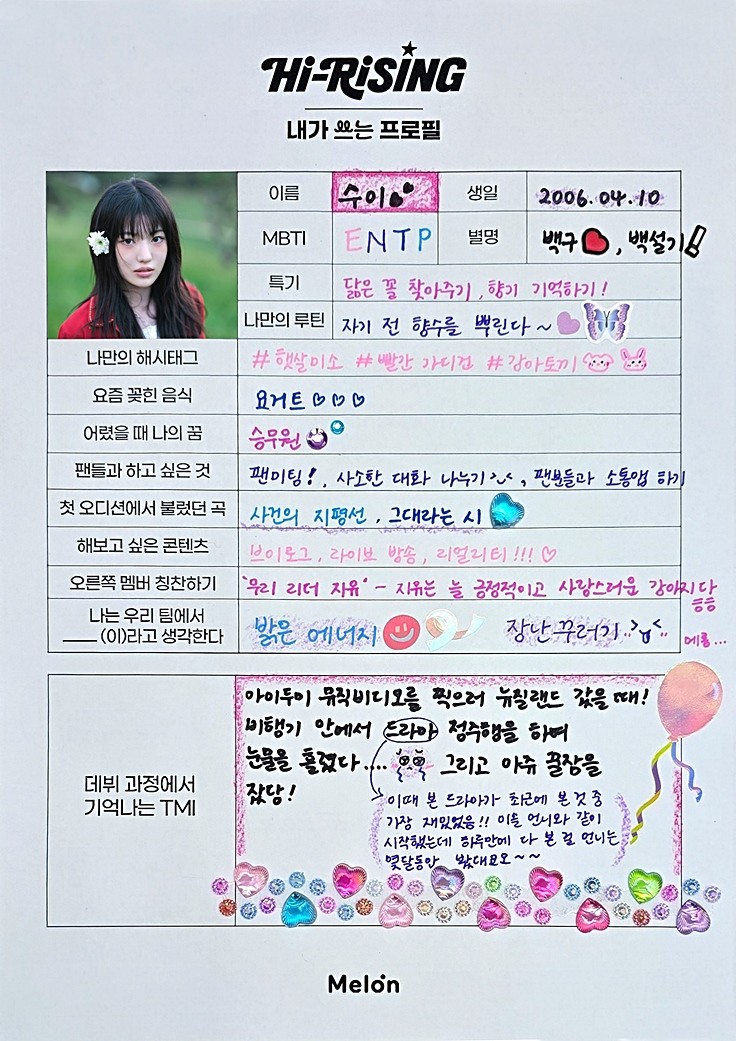 Hi-RiSiNG
내가 쓰는 프로필
이름 수이 생일 2006.04.10
MBTI ENTP 별명 백구, 백설기!
특기 닮은 꼴 찾아주기, 향기 기억하기!
나만의 루틴 자기 전 향수를 뿌린다~
나만의 해시태그 #햇살미소 #빨간 가디건 #강아토끼
요즘 꽂힌 음식 요거트♡♡♡
어렸을 때 나의 꿈 승무원
팬들과 하고 싶은 것 팬미팅!, 사소한 대화 나누기, 팬분들과 소통앱 하기
첫 오디션에서 불렀던 곡 사건의 지평선, 그대라는 시
해보고 싶은 콘텐츠 브이로그, 라이브 방송, 리얼리티!!!♡
오른쪽 멤버 칭찬하기 "우리 리더 지유" - 지유는 늘 긍정적이고 사랑스러운 강아지다
ㅎㅎ
나는 우리 팀에서
____ (이)라고 생각한다 밝은 에너지 장난꾸러기..
메롱...
데뷔 과정에서
기억나는 TMI
아이두미 뮤직비디오를 찍으러 뉴질랜드 갔을 때!
비행기 안에서 드라마 정주행을 하며
눈물을 흘렸다.... 그리고 아쥬 꿀잠을
잤당!
이때 본 드라마가 최근에 본 것 중
가장 재밌었음!! 이솔 언니와 같이
시작했는데 하루만에 다 본 걸 언니는
몇달동안 봤대요오~~
Melon